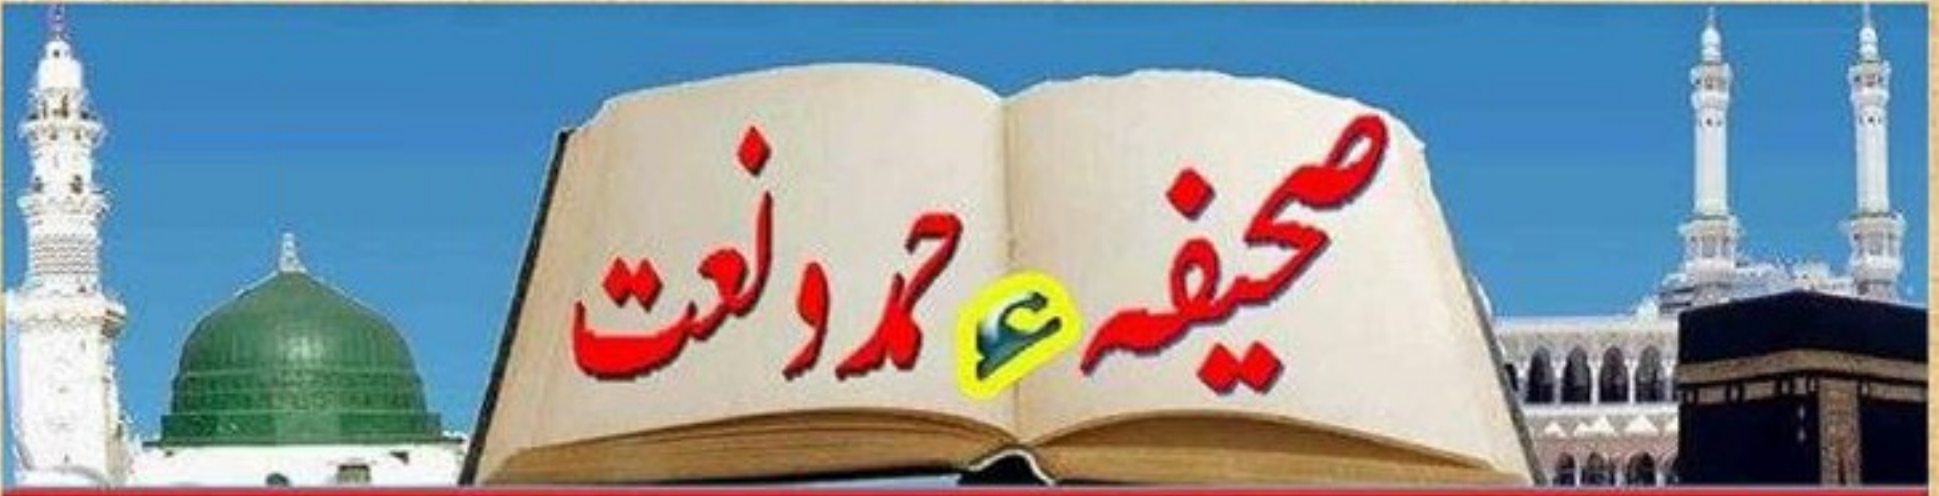 صحیفہ ء حمد و نعت